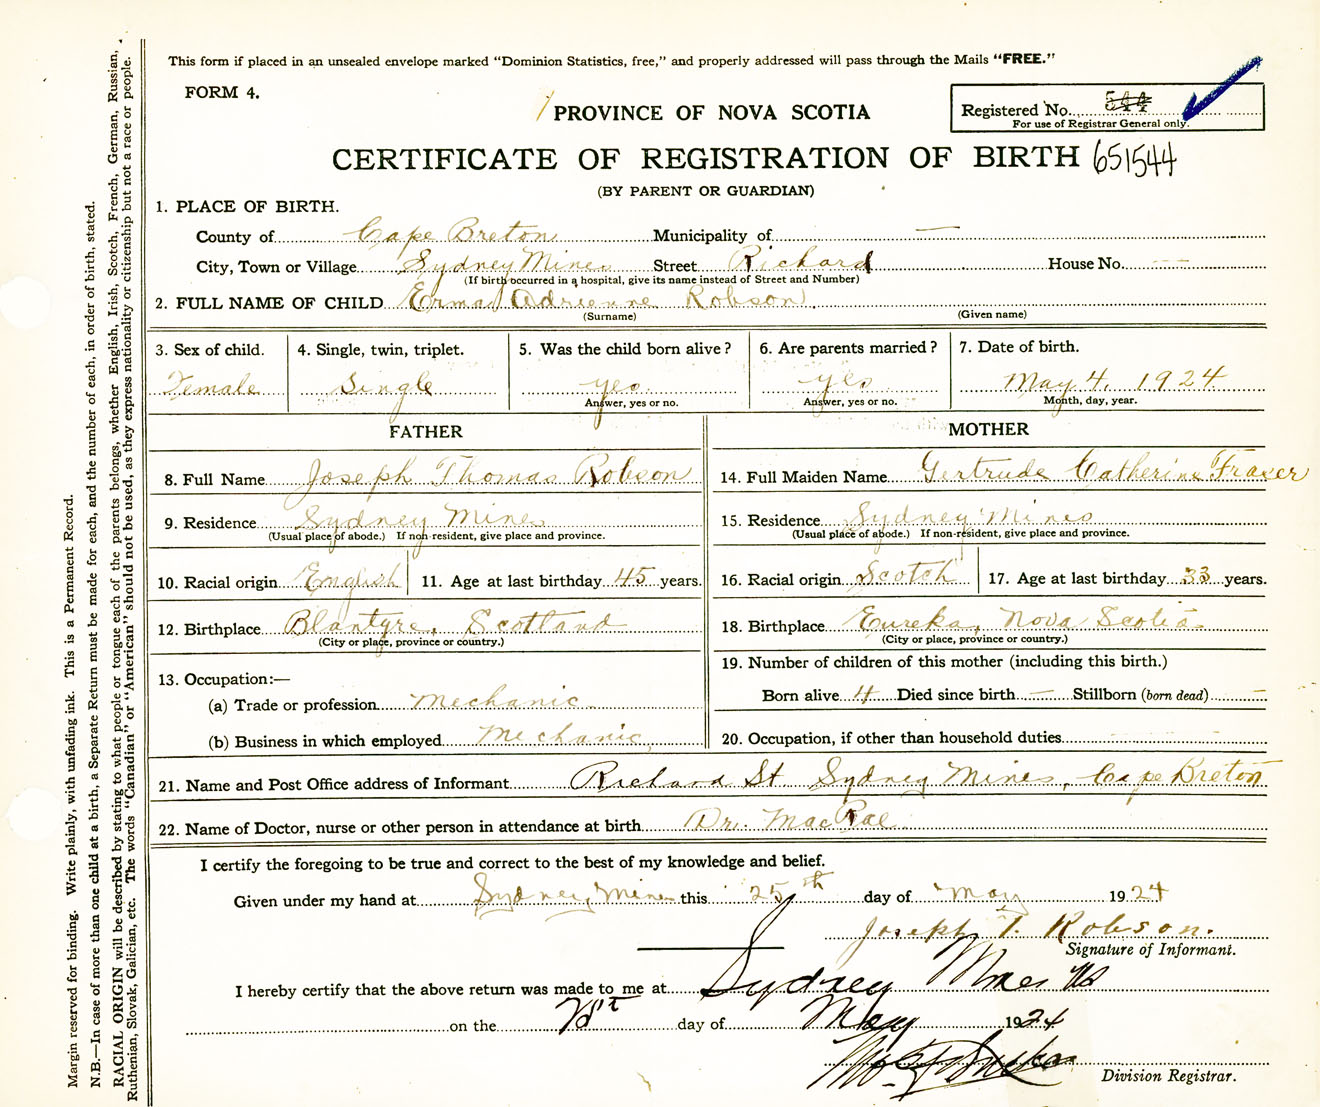 This form if placed in an unsealed envelope marked "Dominion Statistics, free," and properly addressed will pass through the Mails "FREE."
FORM 4.
PROVINCE OF NOVA SCOTIA
Registered No. 544
For use of Registrar General only.
CERTIFICATE OF REGISTRATION OF BIRTH 651544
(BY PARENT OR GUARDIAN)
1. PLACE OF BIRTH.
County of Cape Breton Municipality of —
City, Town or Village Sydney Mines Street Richard House No. —
(If birth occurred in a hospital, give its name instead of Street and Number)
2. FULL NAME OF CHILD Erma Adrienne Robson
(Surname) (Given name)
3. Sex of child. 4. Single, twin, triplet. 5. Was the child born alive? 6. Are parents married? 7. Date of birth.
Female Single yes yes May 4, 1924
Answer, yes or no. Answer, yes or no. Month, day, year.
FATHER MOTHER
8. Full Name Joseph Thomas Robson 14. Full Maiden Name Gertrude Catherine Fraser
9. Residence Sydney Mines 15. Residence Sydney Mines
(Usual place of abode.) If non-resident, give place and province. (Usual place of abode.) If non-resident, give place and province.
10. Racial origin English 11. Age at last birthday 45 years. 16. Racial origin Scotch 17. Age at last birthday 33 years.
12. Birthplace Blantyre, Scotland 18. Birthplace Eureka, Nova Scotia
(City or place, province or country.) (City or place, province or country.)
19. Number of children of this mother (including this birth.)
13. Occupation:—
(a) Trade or profession Mechanic Born alive 4 Died since birth — Stillborn (born dead) —
(b) Business in which employed Mechanic 20. Occupation, if other than household duties
21. Name and Post Office address of Informant Richard St Sydney Mines, Cape Breton
22. Name of Doctor, nurse or other person in attendance at birth Dr. MacRae
I certify the foregoing to be true and correct to the best of my knowledge and belief.
Given under my hand at Sydney Mines this 25th day of May 1924
Joseph T. Robson.
Signature of Informant.
I hereby certify that the above return was made to me at Sydney Mines NS
on the day of May 1924
Division Registrar.
Margin reserved for binding. Write plainly, with unfading ink. This is a Permanent Record.
N.B.—In case of more than one child at a birth, a Separate Return must be made for each, and the number of each, in order of birth, stated.
RACIAL ORIGIN will be described by stating to what people or tongue each of the parents belongs, whether English, Irish, Scotch, French, German, Russian,
Ruthenian, Slovak, Galician, etc. The words "Canadian" or "American" should not be used, as they express nationality or citizenship but not a race or people.